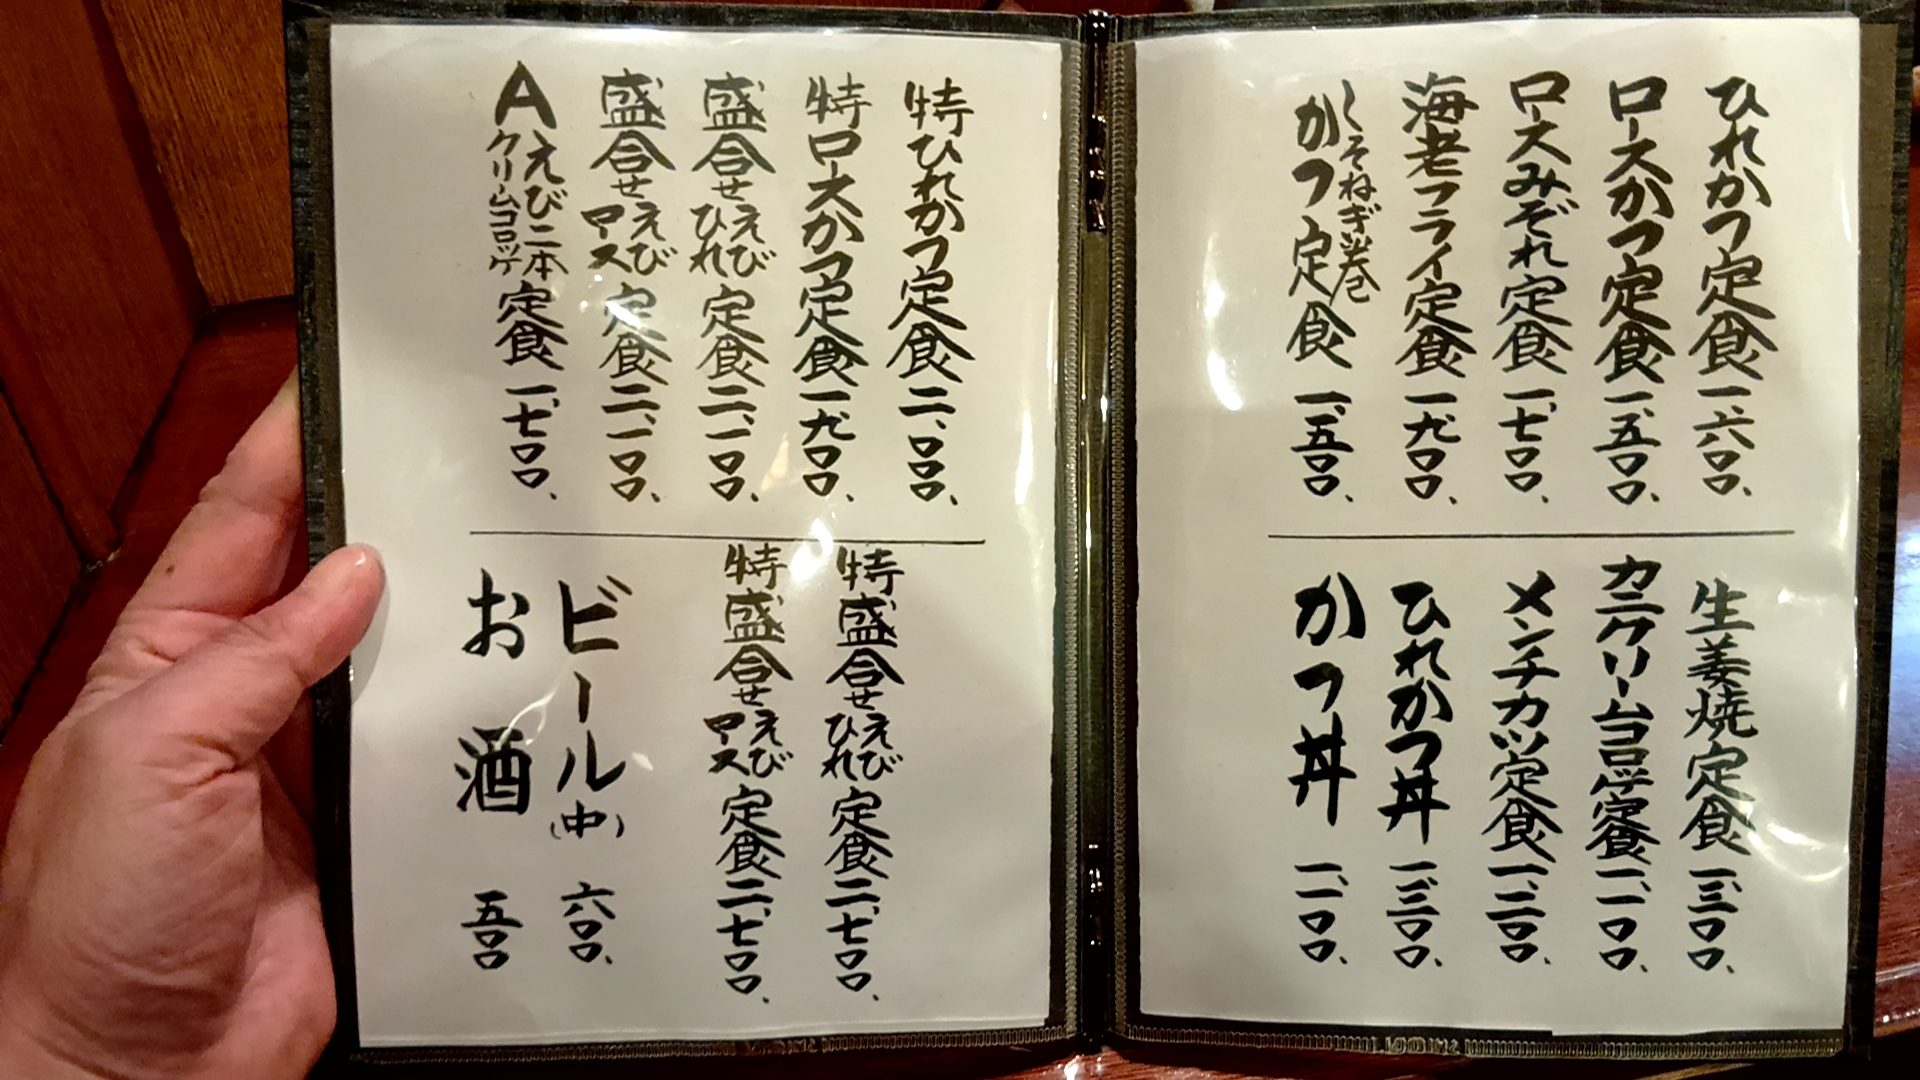 ひれかつ定食 一、六〇〇、
ロースかつ定食 一、五〇〇、
ロースみぞれ定食 一、七〇〇、
海老フライ定食 一、九〇〇、
しそねぎ巻かつ定食 一、五〇〇、
生姜焼定食 一、三〇〇、
カニクリームコロッケ定食 一、一〇〇、
メンチカツ定食 一、二〇〇、
ひれかつ丼 一、三〇〇、
かつ丼 一、一〇〇、
特ひれかつ定食 二、〇〇〇、
特ロースかつ定食 一、九〇〇、
盛合せえびひれ定食 二、一〇〇、
盛合せえびロース定食 二、一〇〇、
Aえび二本クリームコロッケ定食 一、七〇〇、
特盛合せえびひれ定食 二、七〇〇、
特盛合せえびロース定食 二、七〇〇、
ビール(中) 六〇〇、
お酒 五〇〇